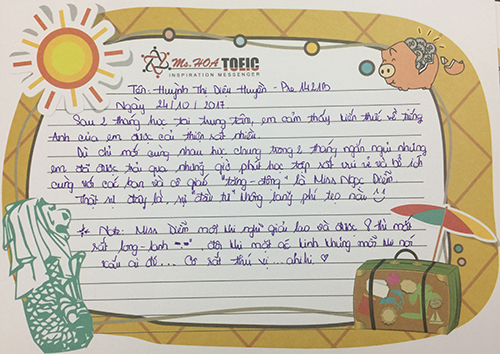 Ms.HOA TOEIC
INSPIRATION MESSENGER
Tên: Huỳnh Thị Diệu Huyền - Pre 1421B
Ngày 24/10/2017
Sau 2 tháng học tại trung tâm, em cảm thấy kiến thức về tiếng
Anh của em được cải thiện rất nhiều.
Dù chỉ mới cùng nhau học chung trong 2 tháng ngắn ngủi nhưng
em đã được trải qua những giờ phút học tập rất vui vẻ và bổ ích
cùng với các bạn và cô giáo "tăng-động" là Miss Ngọc Diễm.
Thật sự đây là sự "đầu tư" không lãng phí tẹo nào
* Note: Miss Diễm mỗi khi nghỉ giải lao và được thì mắt
rất long-lanh, đôi khi một số hình nhưng mỗi
xấu ai đó... Cô rất thú vị... ahihi ♡